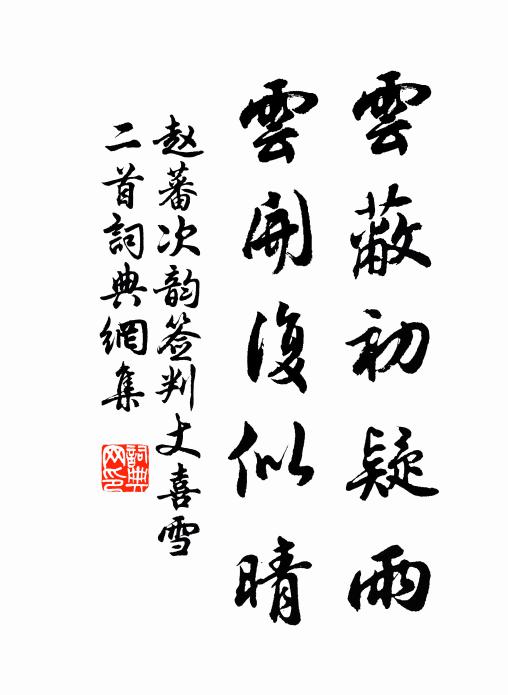 雲蔽初疑雨
雲開復似晴
赵蕃次韵签判丈喜雪
二首詞典網集
詞典
网印